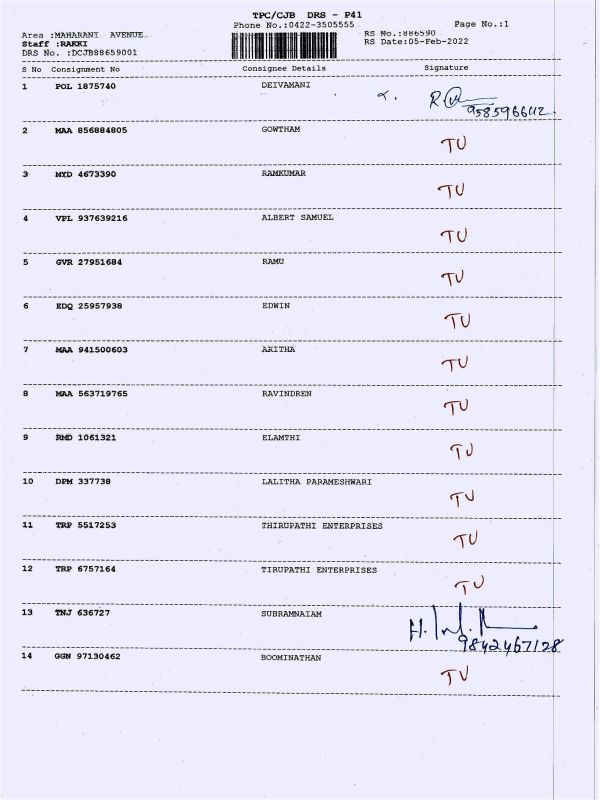 TPC/CJB DRS - P41
Phone No.:0422-3505555 Page No.:1
Area :MAHARANI AVENUE RS No.:886590
Staff :RAKKI RS Date:05-Feb-2022
DRS No. :DCJB88659001
S No Consignment No Consignee Details Signature
1 POL 1875740 DEIVAMANI
2 MAA 856884805 GOWTHAM TU
3 MYD 4673390 RAMKUMAR TU
4 VPL 937639216 ALBERT SAMUEL TU
5 GVR 27951684 RAMU TU
6 EDQ 25957938 EDWIN TU
7 MAA 941500603 ARITHA TU
8 MAA 563719765 RAVINDREN TU
9 RMD 1061321 ELAMTHI TU
10 DPM 337738 LALITHA PARAMESHWARI TU
11 TRP 5517253 THIRUPATHI ENTERPRISES TU
12 TRP 6757164 TIRUPATHI ENTERPRISES TU
13 TNJ 636727 SUBRAMNAIAM
9842467128
14 GGN 97130462 BOOMINATHAN TU